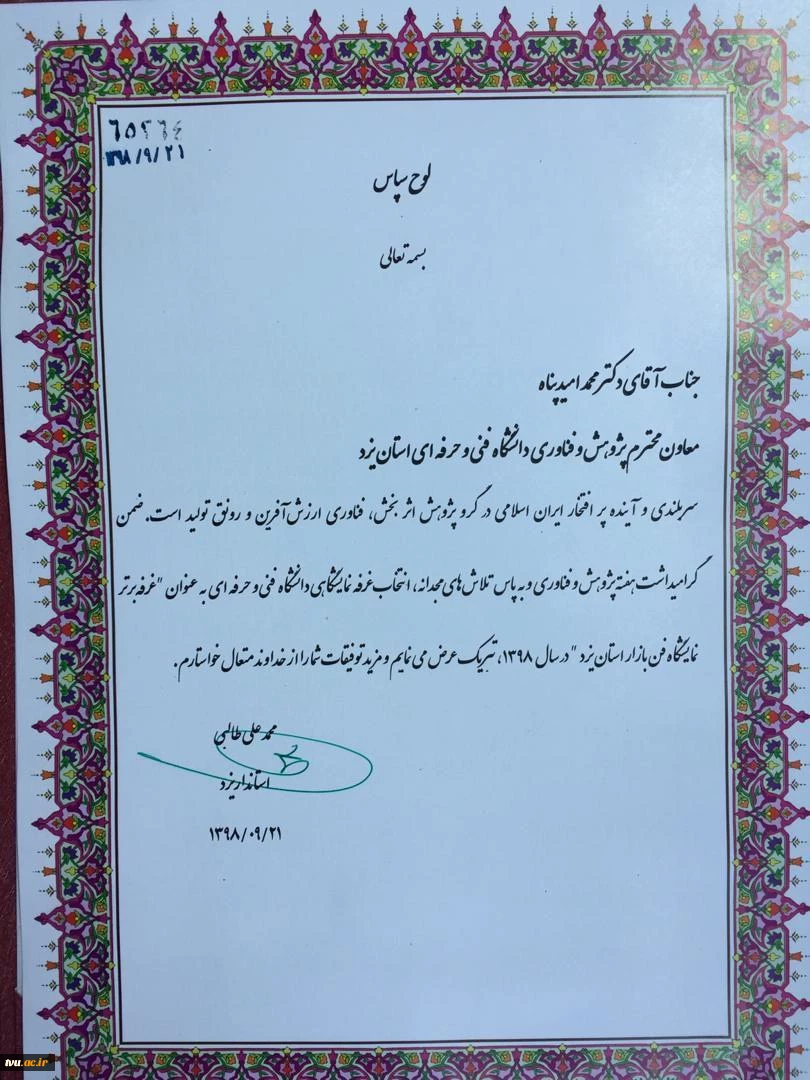 ۶۵۲۶۴
۱۳۹۸/۹/۲۱
لوح سپاس
بسمه تعالی
جناب آقای دکتر محمد امیدپناه
معاون محترم پژوهش و فناوری دانشگاه فنی و حرفه ای استان یزد
سربلندی و آینده پر افتخار ایران اسلامی در گرو پژوهش اثر بخش، فناوری ارزش آفرین و رونق تولید است. ضمن
گرامیداشت هفته پژوهش و فناوری و به پاس تلاش های مجدانه، انتخاب غرفه نمایشگاهی دانشگاه فنی و حرفه ای به عنوان "غرفه برتر
نمایشگاه فن بازار استان یزد" در سال ۱۳۹۸، تبریک عرض می نمایم و مزید توفیقات شما را از خداوند متعال خواستارم.
محمد علی طالبی
استاندار یزد
۱۳۹۸/۰۹/۲۱
tvu.ac.ir